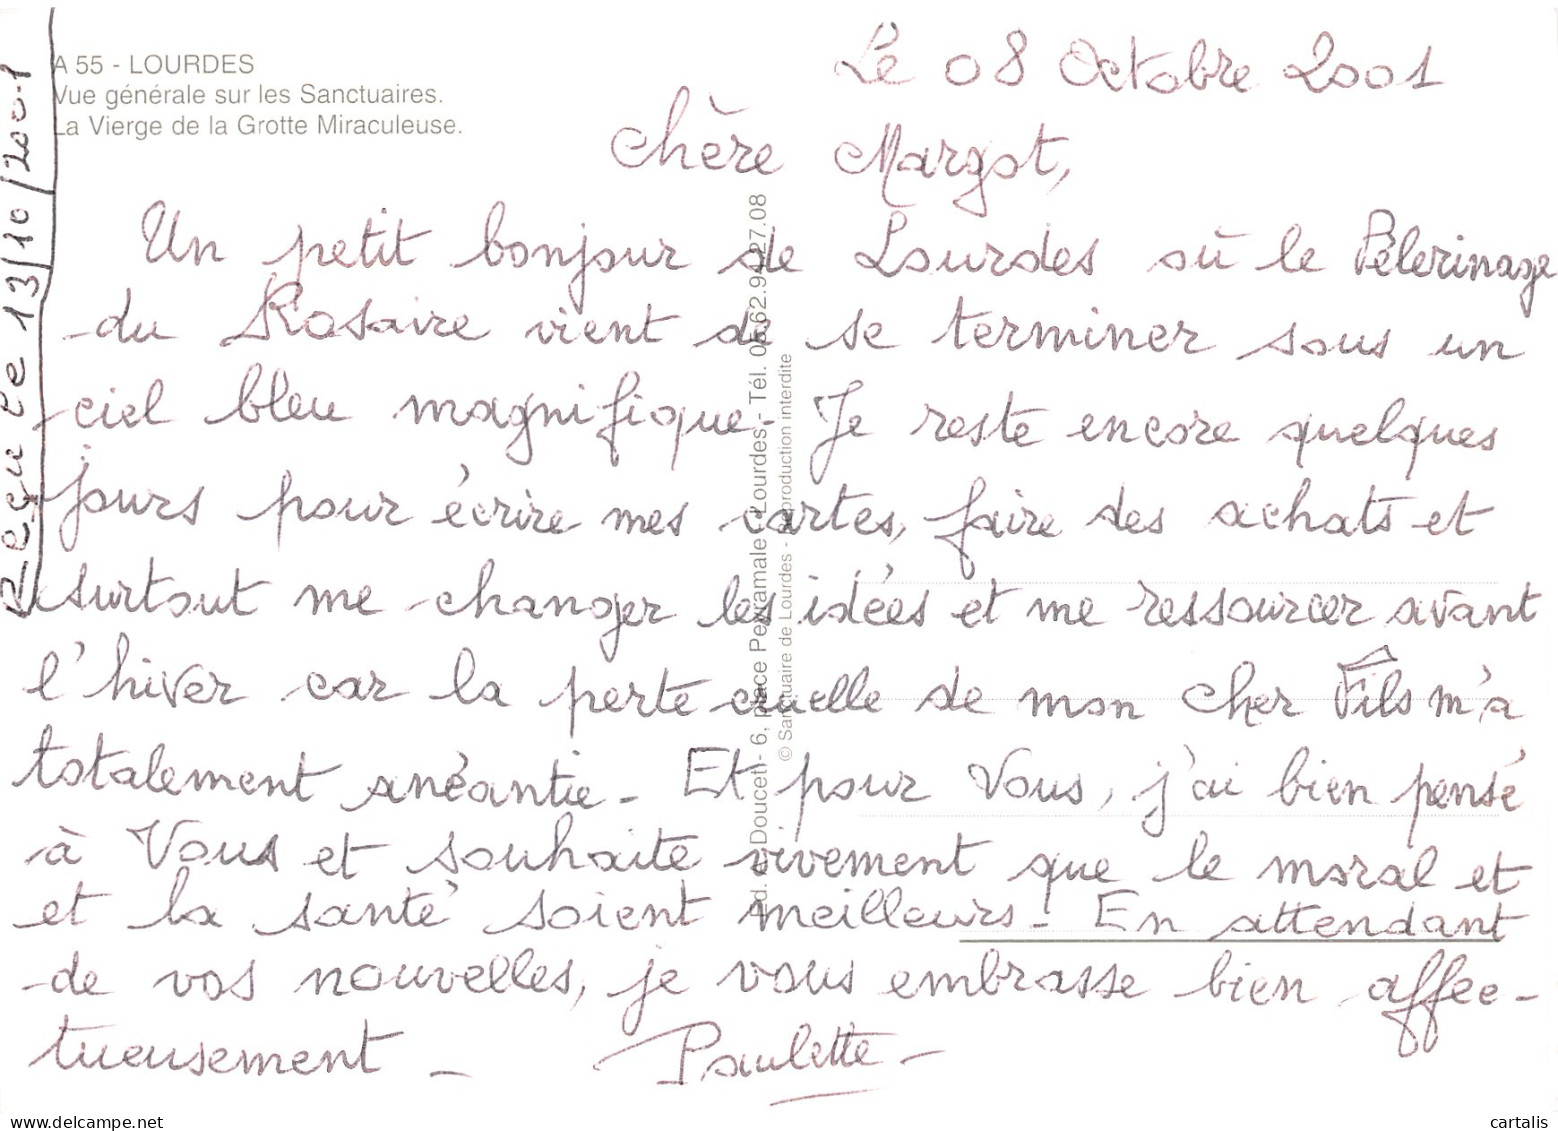 A 55 - LOURDES
Vue générale sur les Sanctuaires.
La Vierge de la Grotte Miraculeuse.
Reçu le 13/10/2001
Le 08 Octobre 2001
Chère Margot,
Un petit bonjour de Lourdes où le Pélerinage
du Rosaire vient de se terminer sous un
ciel bleu magnifique. Je reste encore quelques
jours pour écrire mes cartes, faire des achats et
surtout me changer les idées et me ressourcer avant
l'hiver car la perte cruelle de mon cher Fils m'a
totalement anéantie - Et pour Vous, j'ai bien pensé
à Vous et souhaite vivement que le moral et
et la santé soient meilleurs - En attendant
de vos nouvelles, je vous embrasse bien affec-
tueusement - Paulette -
Ed. A. Doucet - 6, place Peyramale - Lourdes - Tél. 05.62.94.27.08
© Sanctuaire de Lourdes - Reproduction interdite
delcampe.net
cartalis